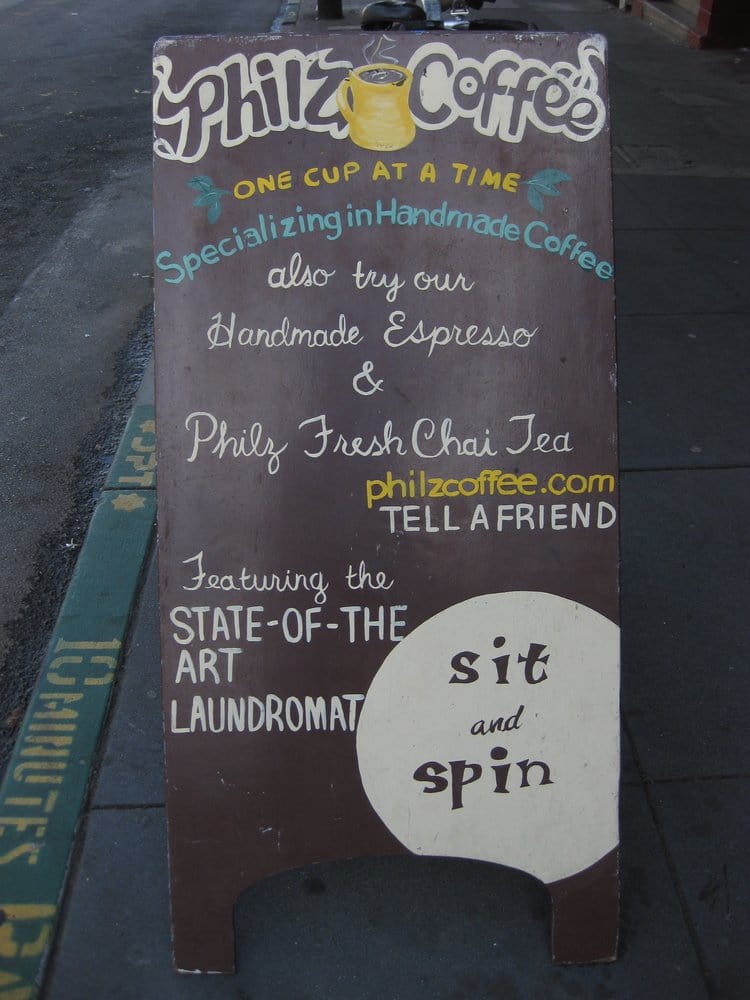 Philz Coffee
ONE CUP AT A TIME
Specializing in Handmade Coffee
also try our
Handmade Espresso
&
Philz Fresh Chai Tea
philzcoffee.com
TELL A FRIEND
Featuring the
STATE-OF-THE
ART
LAUNDROMAT
sit
and
spin
10 MINUTES